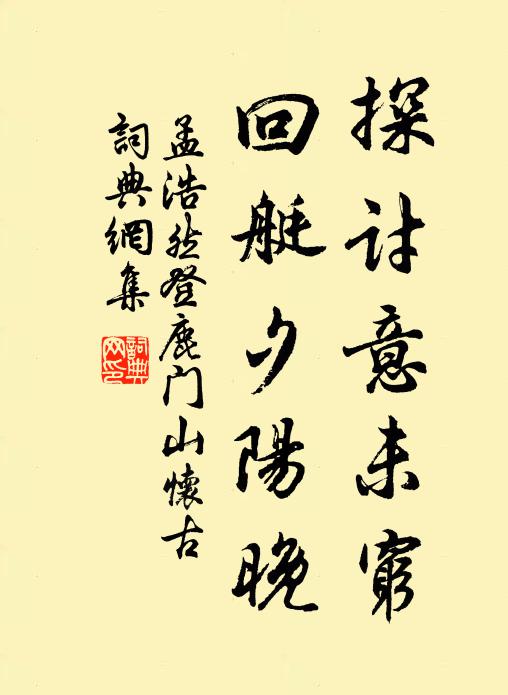 探討意未窮
回艇夕陽晚
孟浩然登鹿门山懷古
詞典網集
詞典
网印